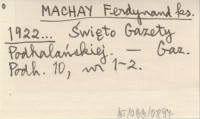 MACHAY Ferdynand ks.
1922... Święto Gazety
Podhalańskiej. — Gaz.
Podh. 10, nr 1-2.